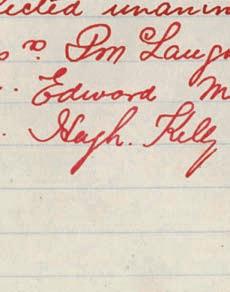 ected unanim
s v. Pm Laug
Edward M
Hugh. Kelly